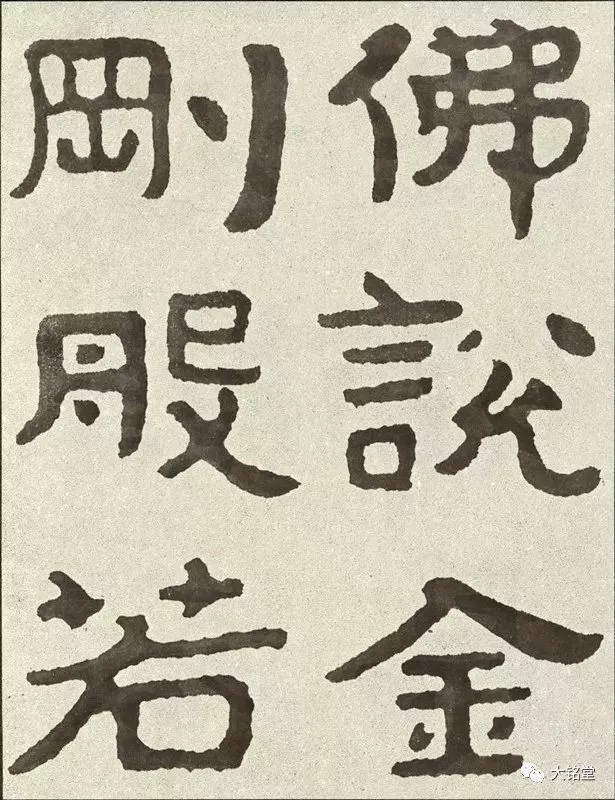 佛說金
剛般若
大铭堂